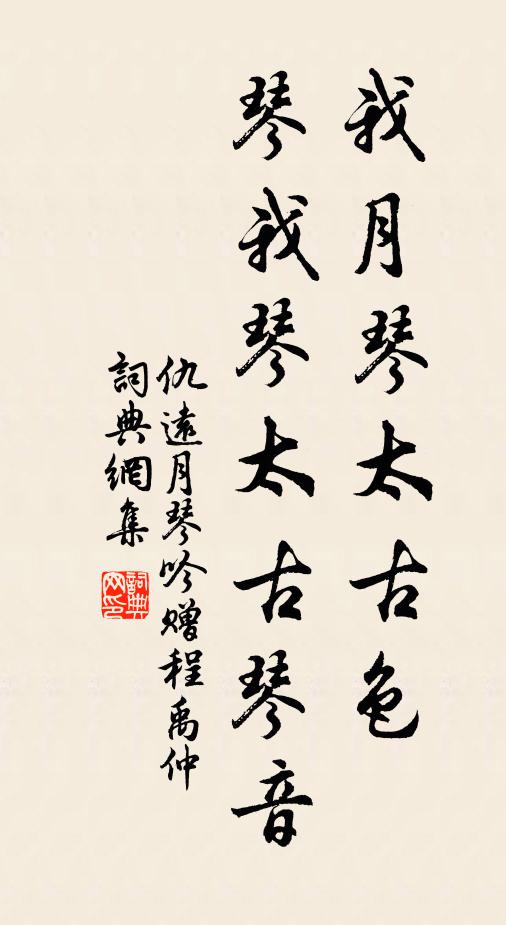 我月琴太古色
琴我琴太古琴音
仇遠月琴吟贈程禹仲
詞典網集
詞典
网印